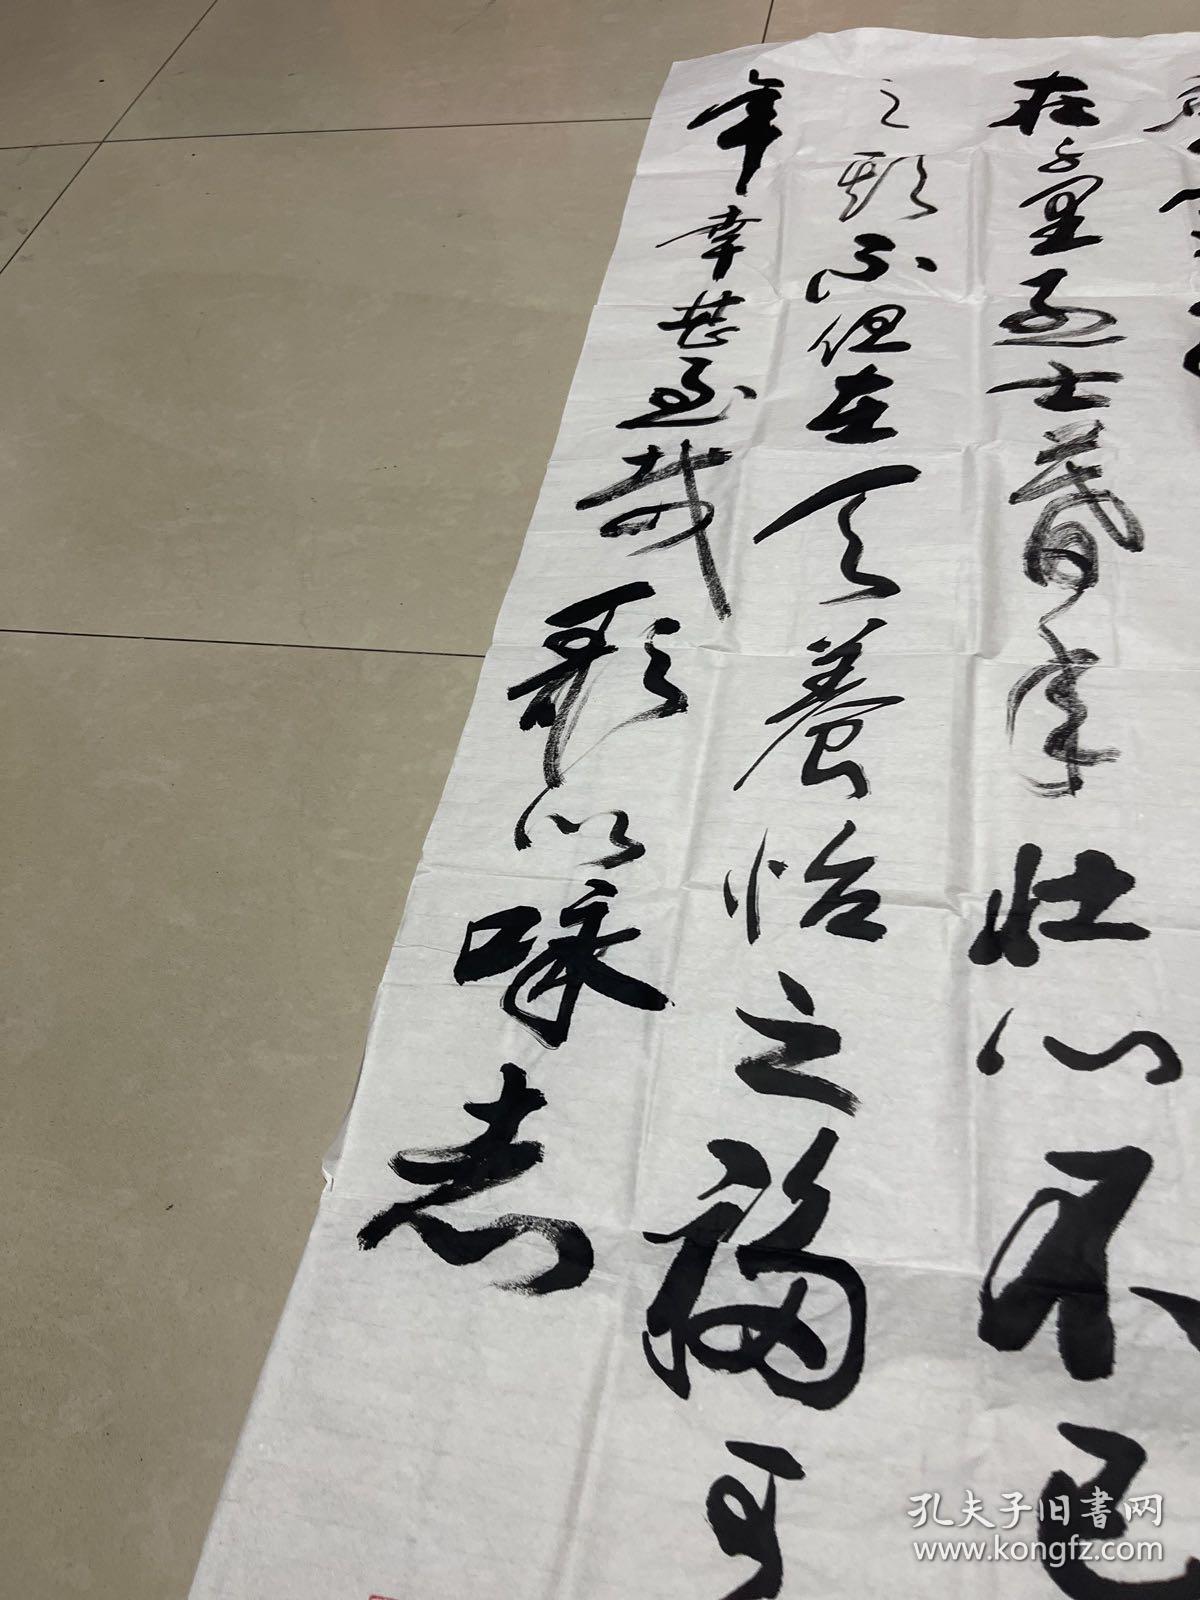 在千里烈士暮年壮心不已
之期不但在天養怡之福可
年幸甚至哉歌以咏志
孔夫子旧書网
www.kongfz.com